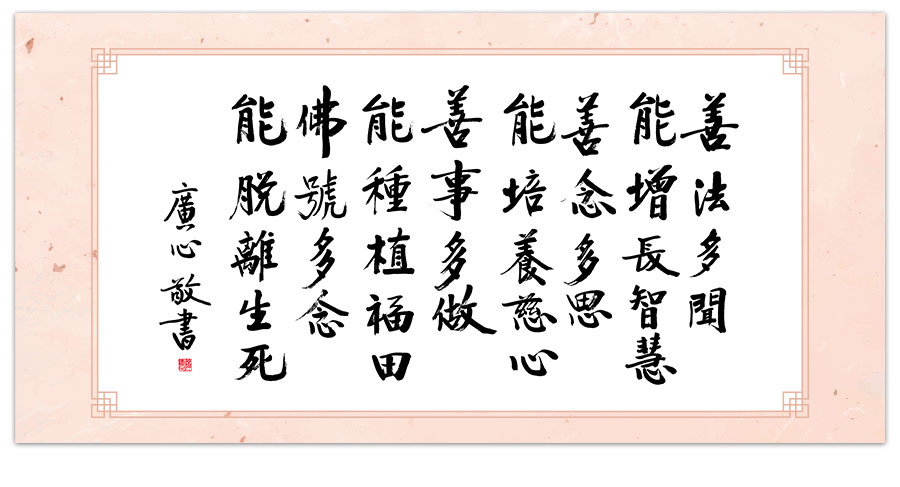 善法多聞
能增長智慧
善念多思
能培養慈心
善事多做
能種植福田
佛號多念
能脫離生死
廣心敬書